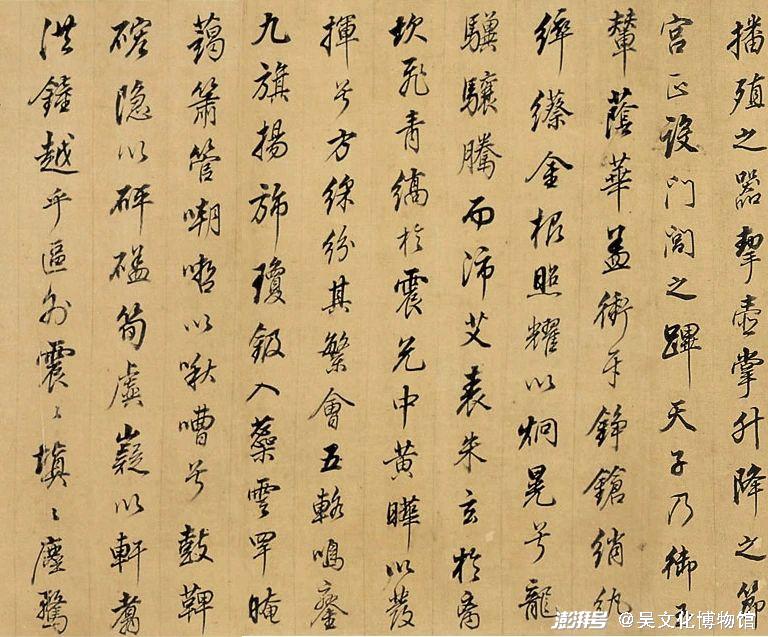 播殖之器挈壺掌升降之節
宮正設門閭之蹕天子乃御玉
輦蔭華蓋衝牙錚鎗綃紈
綷縩金根照耀以炯晃兮龍
驥驤騰而沛艾表朱玄於离
坎飛青縞於震兌中黃曄以發
揮兮方綵紛其繁會五輅鳴鑾
九旗揚旆瓊鈒入蘂雲罕晻
藹簫管嘲哳以啾嘈兮鼓鞞
硡隱以砰磕筍虡嶷以軒翥
洪鐘越乎區外震〻填〻塵騖
澎湃号@吴文化博物馆